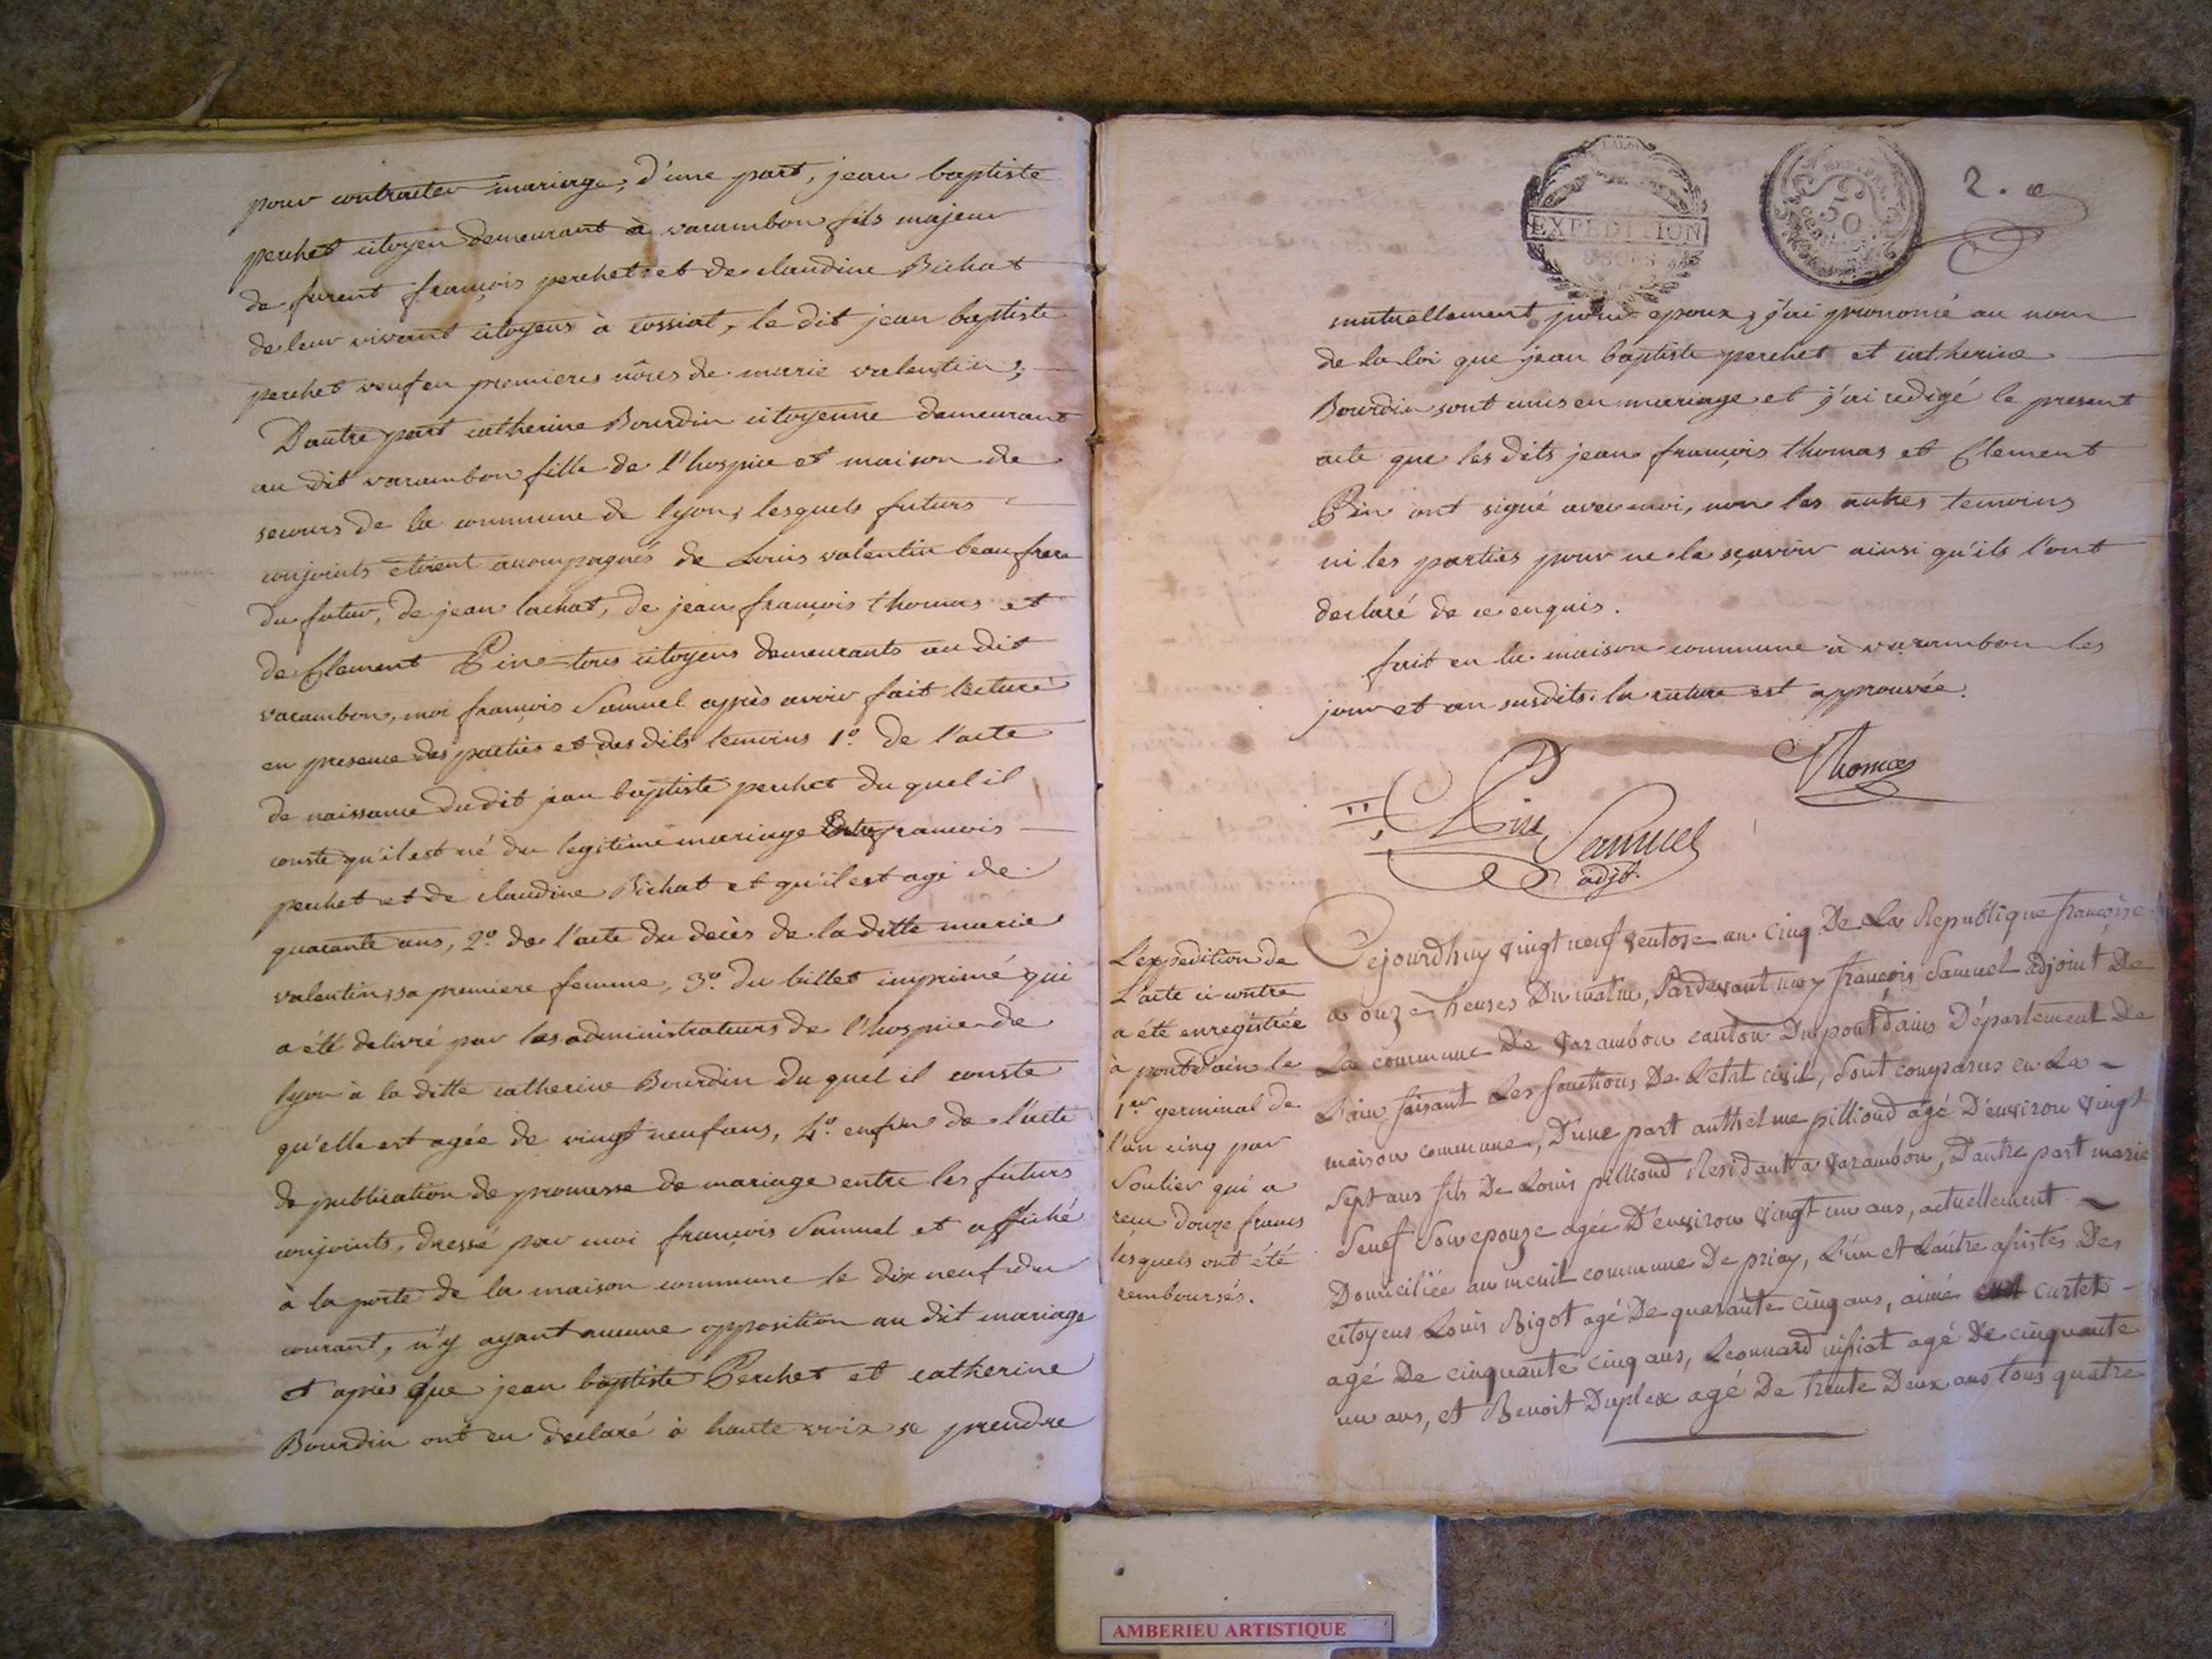 pour contracter mariage, d'une part, jean baptiste
perchet citoyen demeurant à varambon fils majeur
de furent françois perchet et de claudine Bichat
de leur vivant citoyens à tossiat, le dit jean baptiste
perchet veuf en premieres nôces de marie valentin;
D'autre part catherine Bourdin citoyenne demeurant
au dit varambon fille de l'hospice et maison de
secours de la commune de lyon, lesquels futurs
conjoints étoient accompagnés de Louis valentin beaufrere
du futur, de jean lachat, de jean françois thomas et
de Clement Pine tous citoyens demeurants au dit
varambon, moi françois Samuel après avoir fait lecture
en presence des parties et des dits temoins 1° de l'acte
de naissance dudit jean baptiste perchet du quel il
conste qu'il est né du legitime mariage entre francois
perchet et de claudine Bichat et qu'il est agé de
quarante ans, 2° de l'acte du decès de la ditte marie
valentin, sa premiere femme, 3° du billet imprimé qui
a été delivré par les administrateurs de l'hospice de
lyon à la ditte catherine Bourdin du quel il conste
qu'elle est agée de vingt neuf ans, 4° enfin de l'acte
de publication de promesse de mariage entre les futurs
conjoints, dressé par moi françois Samuel et affiché
à la porte de la maison commune le dix neuf du
courant, n'y ayant aucune opposition au dit mariage
et après que jean baptiste Perchet et catherine
Bourdin ont eu declaré à haute voix se prendre
EXPÉDITION
50
2.
mutuellement pour epoux, j'ai prononcé au nom
de la loi que jean baptiste perchet et catherine
Bourdin sont unis en mariage et j'ai redigé le present
acte que les dits jean françois thomas et Clement
Pin ont signé avec moi, non les autres temoins
ni les parties pour ne le sçavoir ainsi qu'ils l'ont
declaré de ce enquis.
fait en la maison commune à varambon les
jour et an susdits. la rature est approuvée.
Thomas
Pine
Samuel
adjt.
L'expedition de
L'acte ci contre
a été enregistrée
à pont d'ain le
1er germinal de
l'an cinq par
Soulier qui a
recu douze francs
lesquels ont été
remboursés.
Cejourdhuy vingt neuf ventose an cinq De La Republique françoise
a onze heures Du matin, Pardevant moy françois Samuel adjoint De
La commune De Varambon canton Du pont d'ains Département De
L'ain faisant Les fonctions De L'etat civil, Sont comparus en La
maison commune, D'une part anthelme pilliond agé D'environ vingt
Sept ans fils De Louis pilliond Residant a Varambon, D'autre part marie
Seuef Son epouze agée D'environ vingt un ans, actuellement
Domiciliée au menit commune De priay, L'un et L'autre assistés Des
citoyens Louis Bigot agé De quarante cinq ans, aimé cartet
agé De cinquante cinq ans, Leonnard agé De cinquante
un ans, et Benoit Duplex agé De trente Deux ans tous quatre
AMBERIEU ARTISTIQUE